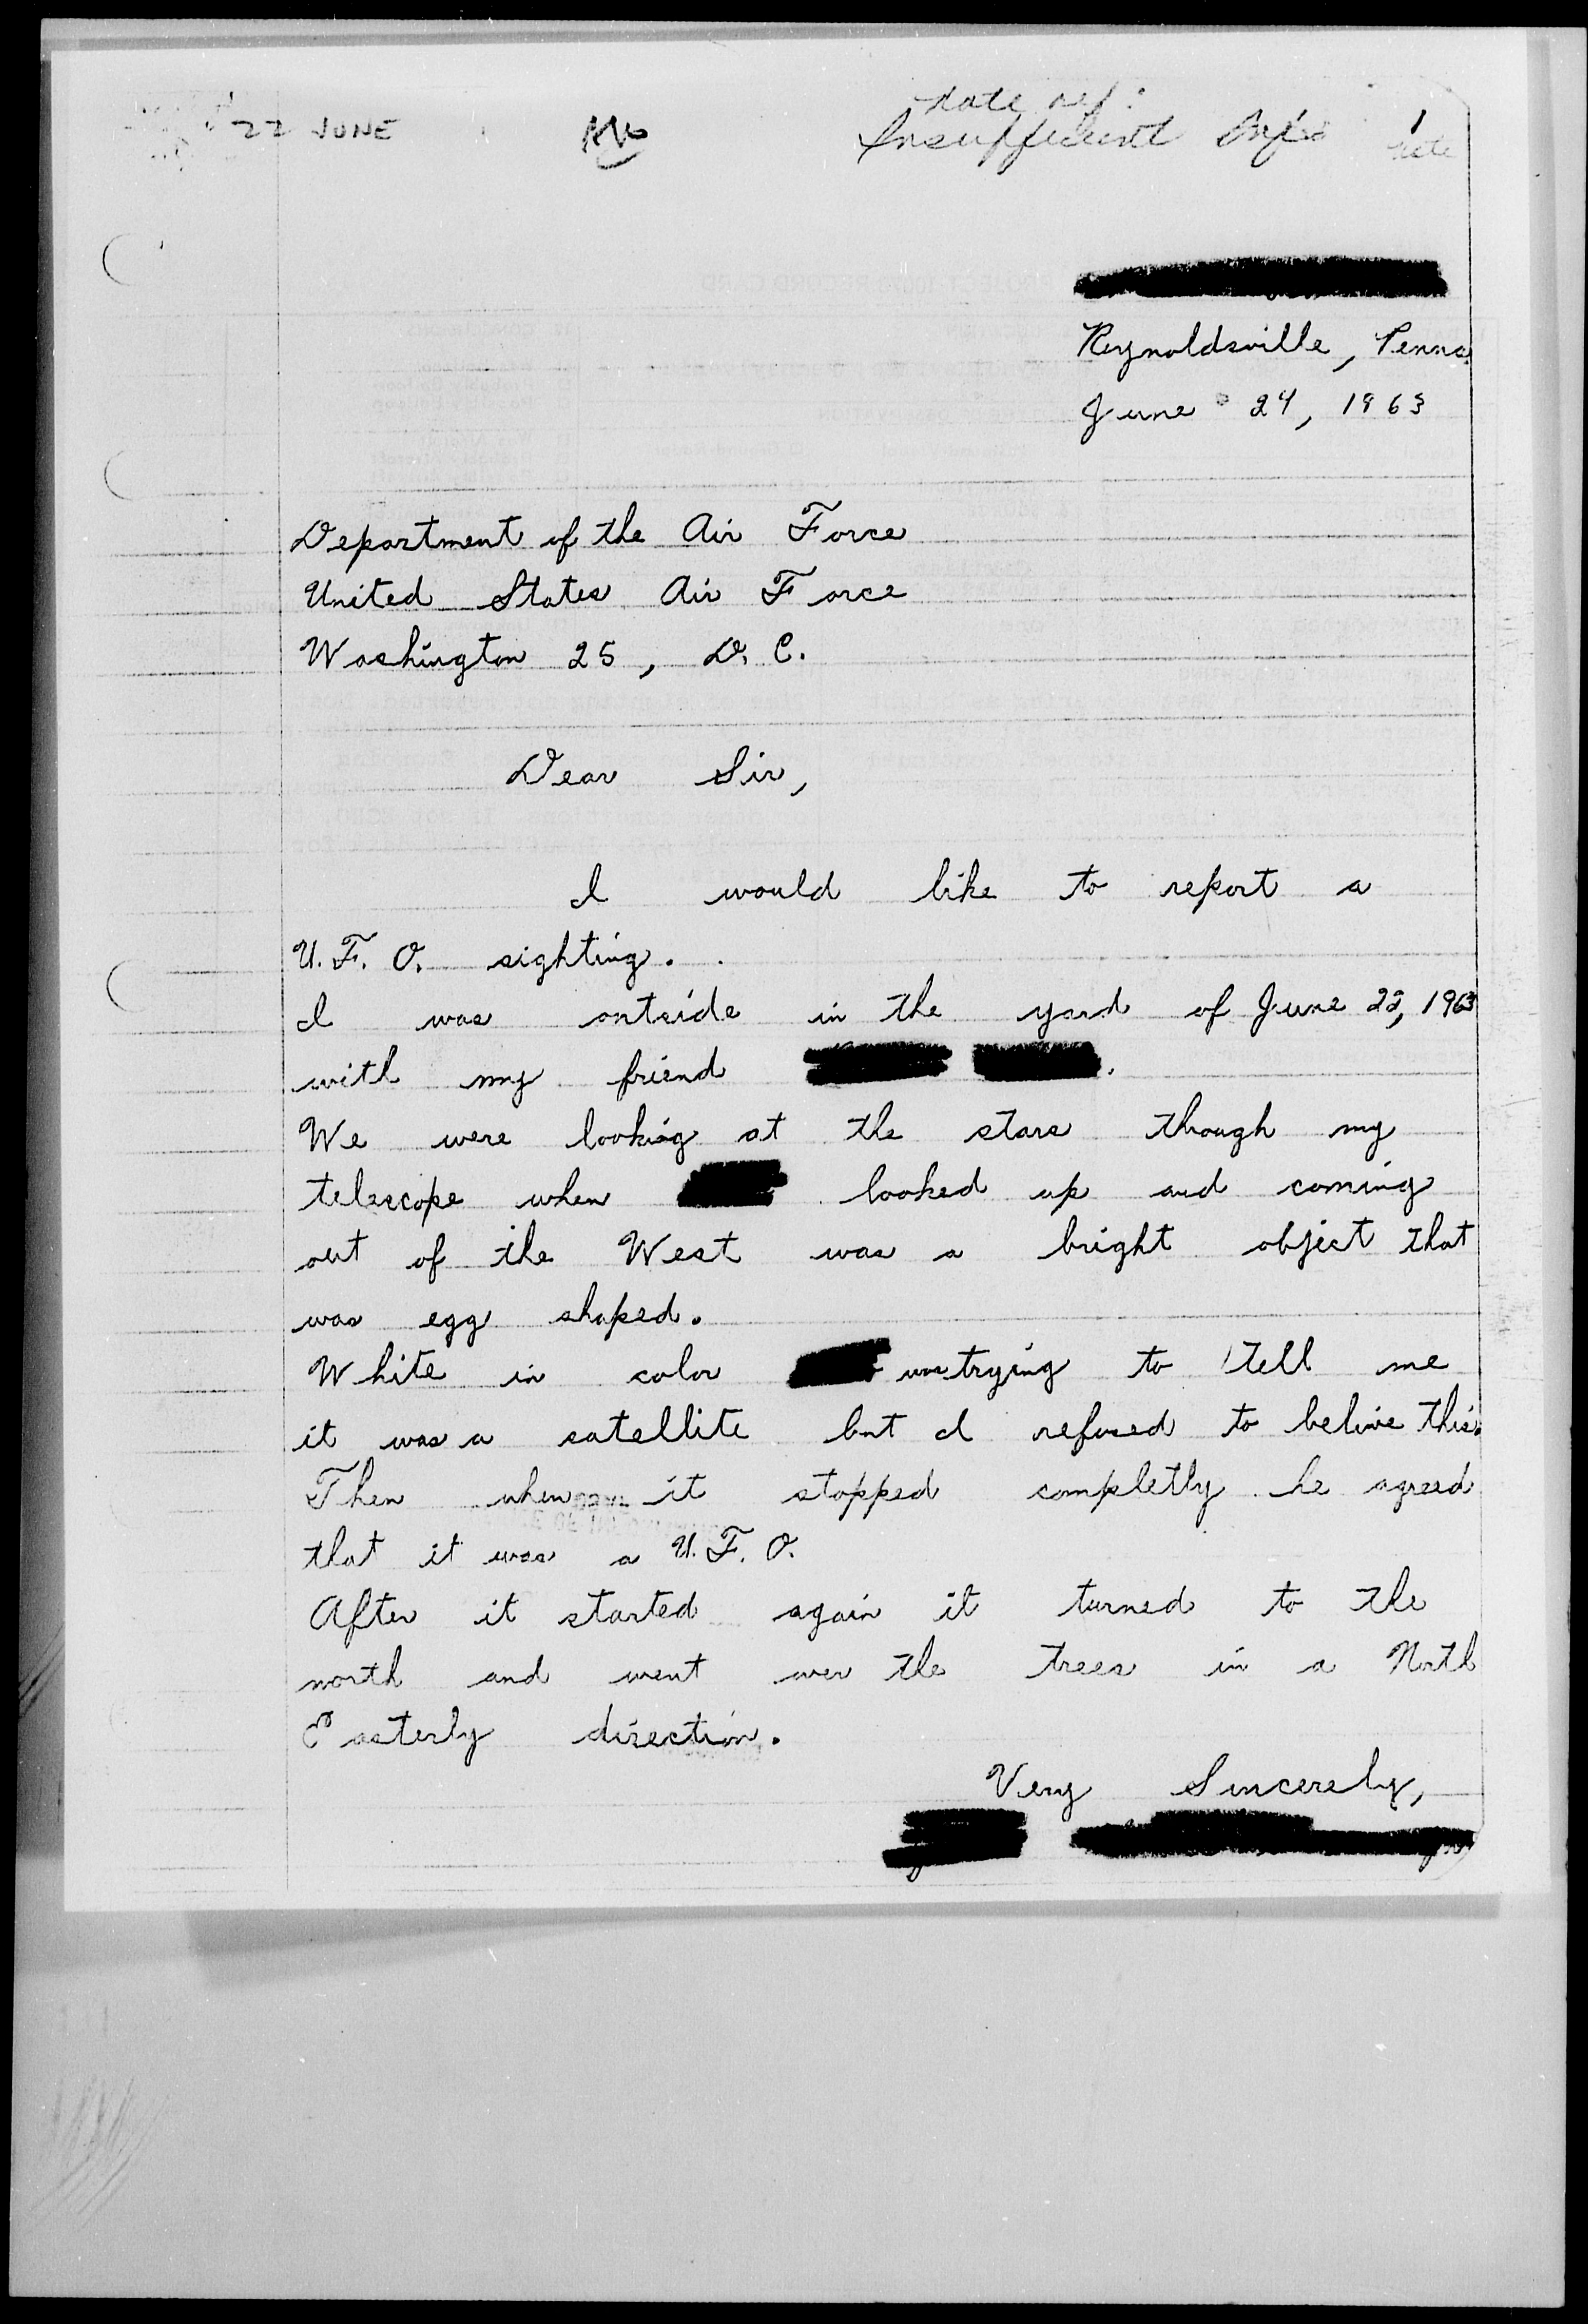 22 JUNE
Insufficient Info 1
Reynoldsville, Penna.
June 24, 1963
Department of the Air Force
United States Air Force
Washington 25, D. C.
Dear Sir,
I would like to report a
U. F. O. sighting.
I was outside in the yard of June 22, 1963
with my friend
We were looking at the stars though my
telescope when looked up and coming
out of the West was a bright object that
was egg shaped.
White in color was trying to tell me
it was a satellite but I refused to belive this.
Then when it stopped completly he agreed
that it was a U. F. O.
After it started again it turned to the
north and went over the trees in a North
Easterly direction.
Very Sincerely,